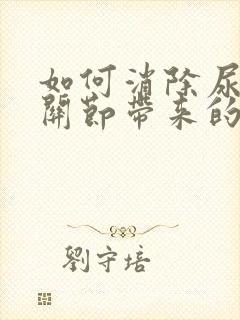 如何消除尿
關節帶來的
劉守培